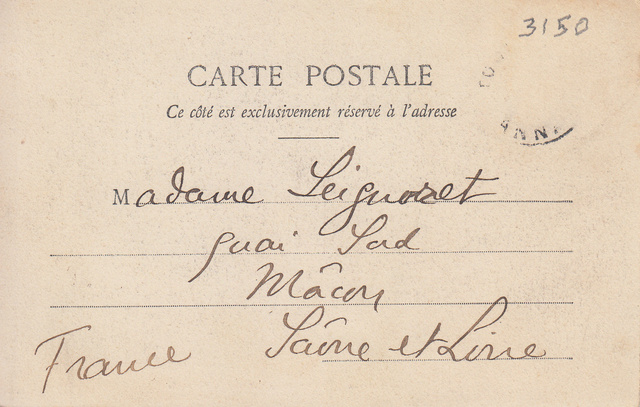 3150
CARTE POSTALE
Ce côté est exclusivement réservé à l'adresse
Madame Seignoret
quai Sud
Mâcon
Saône et Loire
France